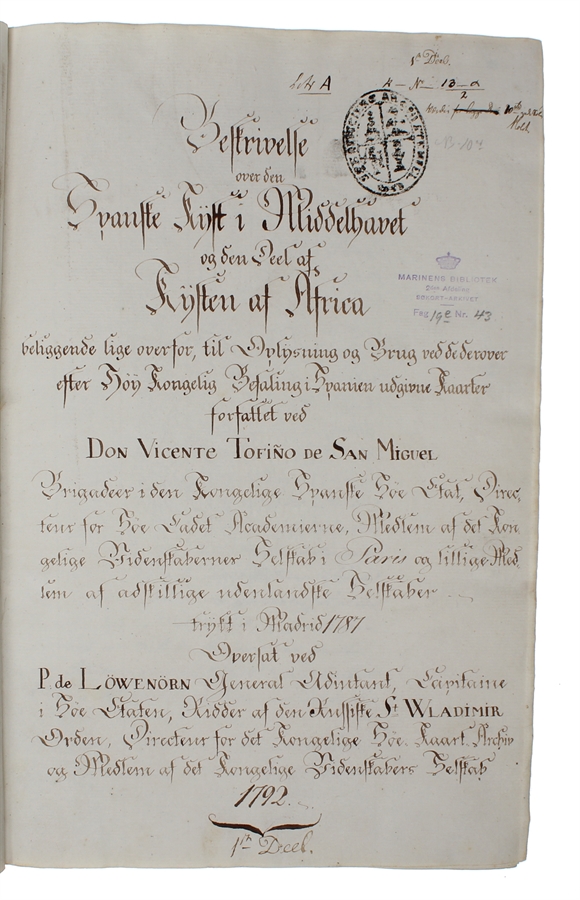 1ª Deel.
Litr A
N — Nº 13-a
2
Beskrivelse
over den
Spanske Kyst i Middelhavet
og den Deel af
Kysten af Africa
beliggende lige overfor, til Oplysning og Brug ved de derover
efter Höy Kongelig Befaling i Spanien udgivne Kaarter
forfattet ved
DON VICENTE TOFIÑO DE SAN MIGUEL
Brigadeer i den Kongelige Spanske Söe Etat, Direc,
teur for Söe Cadet Academierne, Medlem af det Kon,
gelige Videnskaberner Selskab i Paris og tillige Med,
lem af adskillige udenlandske Selskaber
trykt i Madrid 1787
Oversat ved
P. de LÖWENÖRN General Adjutant, Capitaine
i Söe Etaten, Ridder af den Russiske St. WLADIMIR
Orden, Directeur for det Kongelige Söe Kaart Archiv
og Medlem af det Kongelige Videnskabers Selskab
1792.
1ste Deel.
MARINENS BIBLIOTEK
Fag 19e Nr. 43